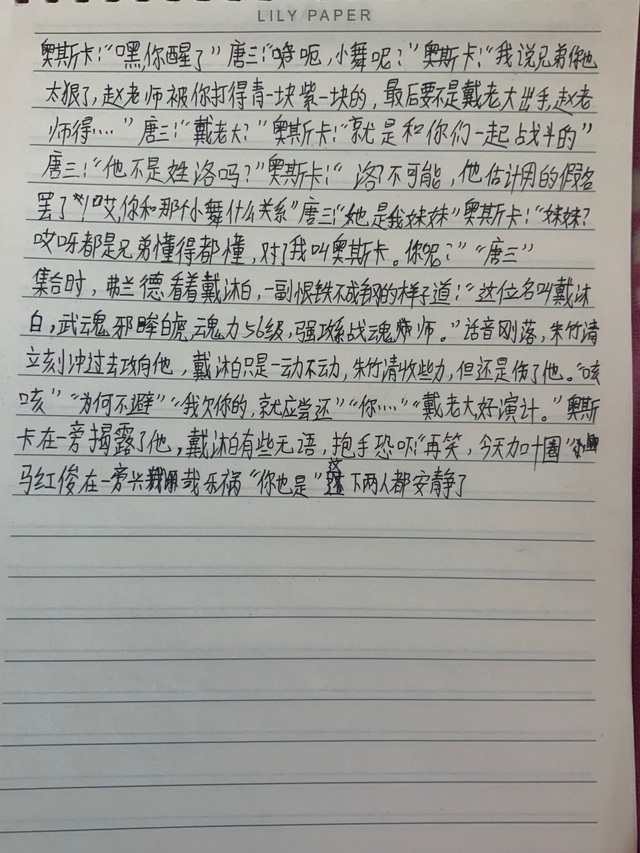 LILY PAPER
奥斯卡:“嘿,你醒了”唐三:“嗯呃,小舞呢?”奥斯卡:“我说兄弟你也
太狠了,赵老师被你打得青一块紫一块的,最后要不是戴老大出手,赵老
师得……”唐三:“戴老大?”奥斯卡:“就是和你们一起战斗的”
唐三:“他不是姓洛吗?”奥斯卡:“洛?不可能,他估计用的假名
罢了”“哎,你和那个小舞什么关系”唐三:“她,是我妹妹”奥斯卡:“妹妹?
哎呀都是兄弟懂得都懂,对了我叫奥斯卡。你呢?”“唐三”
集合时,弗兰德看着戴沐白,一副恨铁不成钢的样子道:“这位名叫戴沐
白,武魂邪眸白虎,魂力56级,强攻系战魂师。”话音刚落,朱竹清
立刻冲过去攻向他,戴沐白只是一动不动,朱竹清收些力,但还是伤了他。“咳
咳”“为何不避”“我欠你的,就应当还”“你……”“戴老大,好演计。”奥斯
卡在一旁揭露了他,戴沐白有些无语,抱手恐吓“再笑,今天加叶圈”
马红俊在一旁兴哉乐祸“你也是”这下两人都安静了